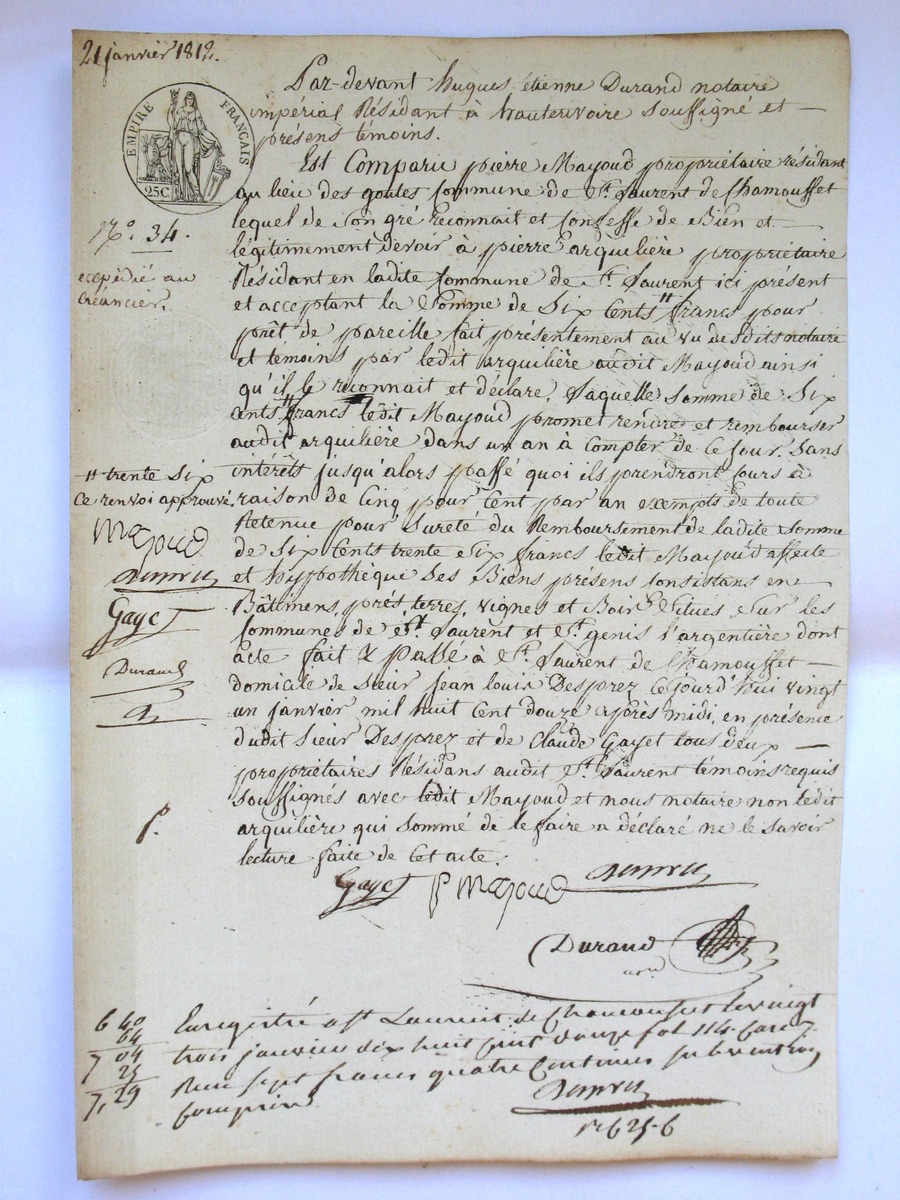 21 janvier 1812.
EMPIRE FRANÇAIS
25C
Par-devant hugues étienne Durand notaire
impérial Résidant à hauterivoire soussigné et
présens témoins.
Est Comparu pierre Mayoud propriétaire résidant
au lieu des goutes Commune de St. Laurent de Chamousset
lequel de Son gré reconnait et Confesse de Bien et
légitimement devoir à pierre arquilière propriétaire
Résidant en ladite Commune de St. Laurent ici présent
et acceptant la Somme de Six Cents # francs pour
prêt de pareille fait présentement au vu desdits notaire
et témoins par ledit arquilière audit Mayoud ainsi
qu'il le reconnait et déclare, Laquelle Somme de Six
Cents # francs ledit Mayoud promet rendre et rembourser
audit arquilière dans un an à Compter de Ce jour, Sans
intérêts jusqu'alors passé quoi ils prendront Cours à
raison de Cinq pour Cent par an exempts de toute
Retenue pour Sureté du Remboursement de ladite Somme
de Six Cents trente Six francs ledit Mayoud affecte
et hypothèque Ses Biens présens Consistans en
Bâtimens, prés, terres, vignes et Bois Situés Sur les
Communes de St. Laurent et St. genis l'argentière dont
acte fait & passé à St. Laurent de Chamousset
domicile de Sieur jean louis Desprez Cejourd'hui vingt
un janvier mil huit Cent douze après midi, en présence
dudit Sieur Desprez et de Claude Gayet tous deux
propriétaires Résidans audit St. Laurent témoins requis
soussignés avec ledit Mayoud et nous notaire non ledit
arquilière qui Sommé de le faire a déclaré ne le Savoir
lecture faite de Cet acte.
N.° 34.
expédié au
Créancier.
# trente Six
Ce renvoi approuvé.
Mayoud
Gayet
Durand
Gayet P Mayoud
Durand
not.
Enregistré à St. Laurent de Chamousset le vingt
trois janvier dix huit Cent douze fol 114. Case 7.
Reçu Sept francs quatre Centimes Subvention
Comprise
6 40
64
7 04
25
7,29